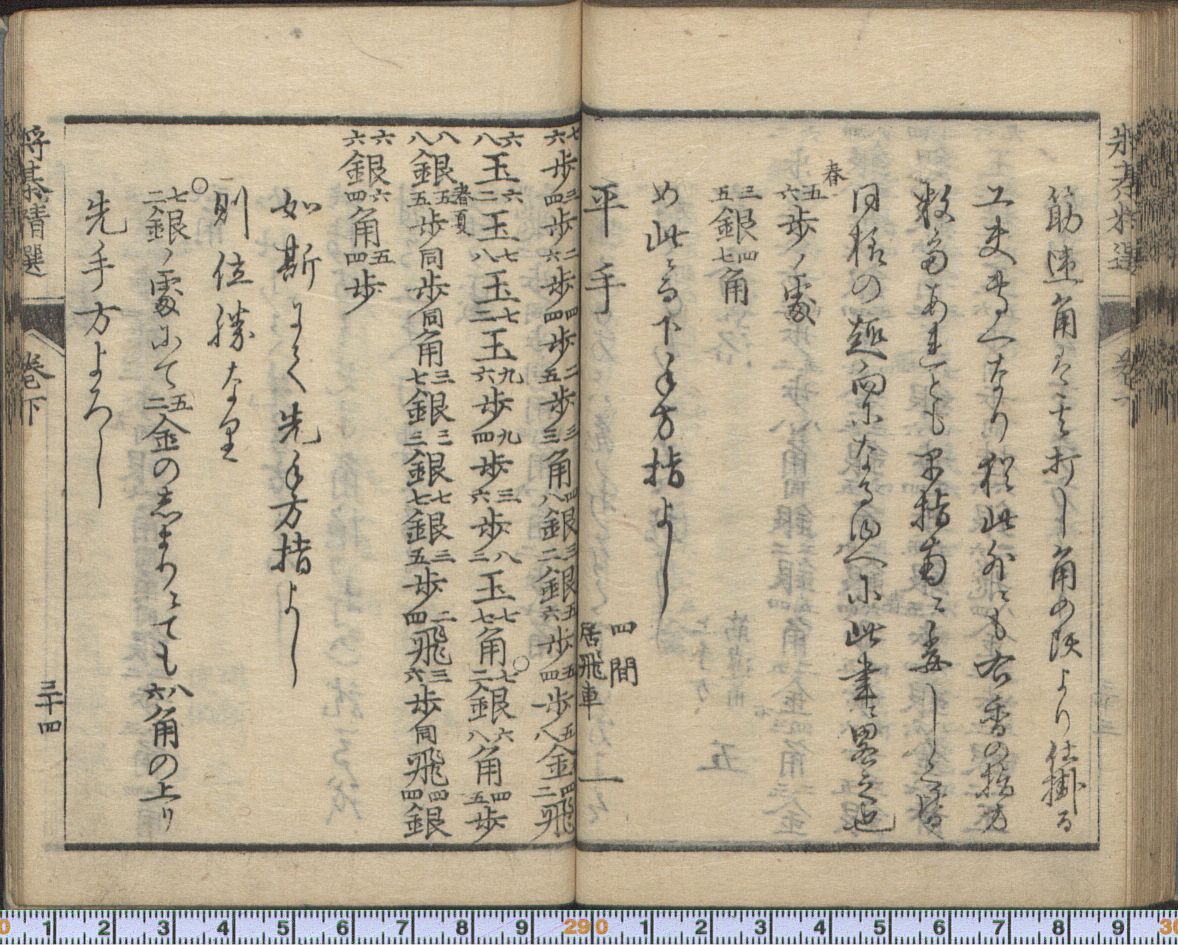 将棊精選
筋違角はまづ打し角の頭より仕掛る
工夫専一なり猶此外にも右香の指方
数多あれとも早指南に委しく皆
同様の趣向になるゆへに此書に畧之也
春
五六歩ノ処
三五銀四七角
如此にて下手方指よし
平手 四間 居飛車 一
七六歩三四歩二六歩四四歩二五歩三三角四八銀三二銀五六歩五四歩五八金四二飛
六八玉六二玉七八玉七二玉九六歩九四歩三六歩八二玉七七角○七二銀六八角四五歩
八八銀春夏五五歩同歩同角三七銀三三銀七七銀三五歩二四飛三六歩同飛四四銀
六六銀六四角五四歩
如斯にて先手方指よし
則位勝なり
○七二銀ノ処にて五二金のしまりにても八六角の上り
先手方よろし
将棊精選 巻下 三十四